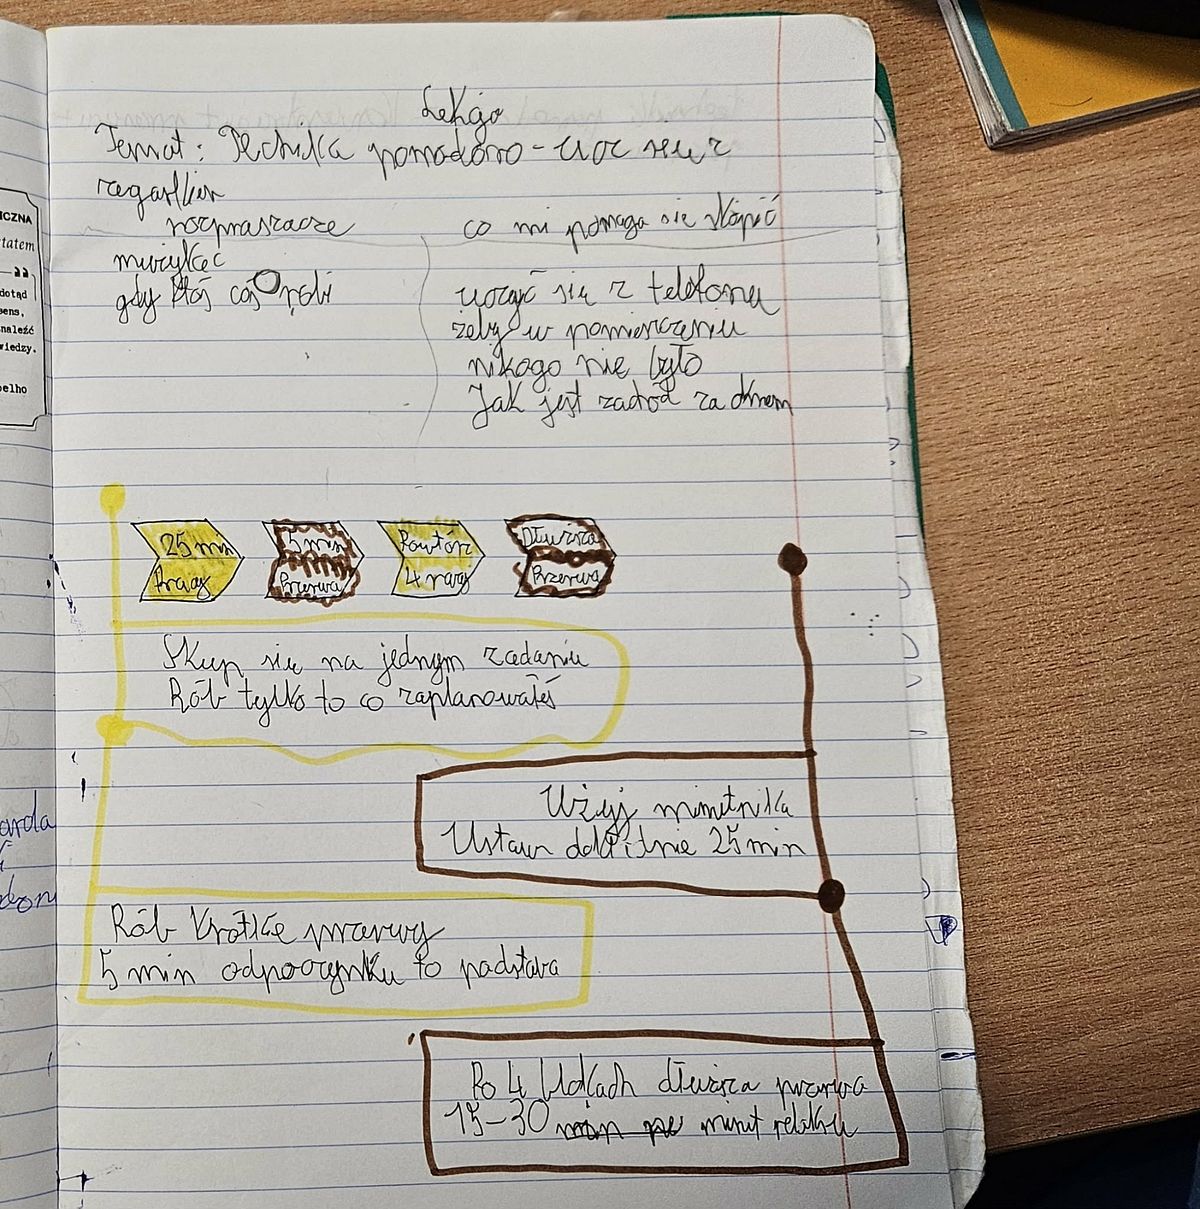 Lekcja
Temat: Technika pomodoro - ucz się z
zegarkiem
rozpraszacze
co mi pomaga się skupić
muzyka
gdy ktoś coś robi
uczyć się z telefonu
żeby w pomieszczeniu
nikogo nie było
Jak jest zachód za oknem
25 min
Pracy
5 min
Przerwa
Powtórz
4 razy
Dłuższa
Przerwa
Skup się na jednym zadaniu
Rób tylko to co zaplanowałeś
Użyj minutnika
Ustaw dokłitnie 25 min
Rób krótkie przerwy
5 min odpoczynku to podstawa
Po 4 blokach dłuższa przerwa
15-30 minut relaksu
ICZNA
tatem
dotąd
sens,
naleźć
wiedzy.
oelho
arda